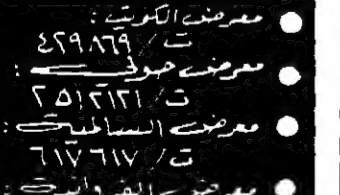 معرض الكويت :
ت / ٤٢٩٨٦٩
معرض حولي :
ت / ٢٥١٢١٢١
معرض السالمية :
ت / ٦١٧٦١٧
معرض الفروانية :